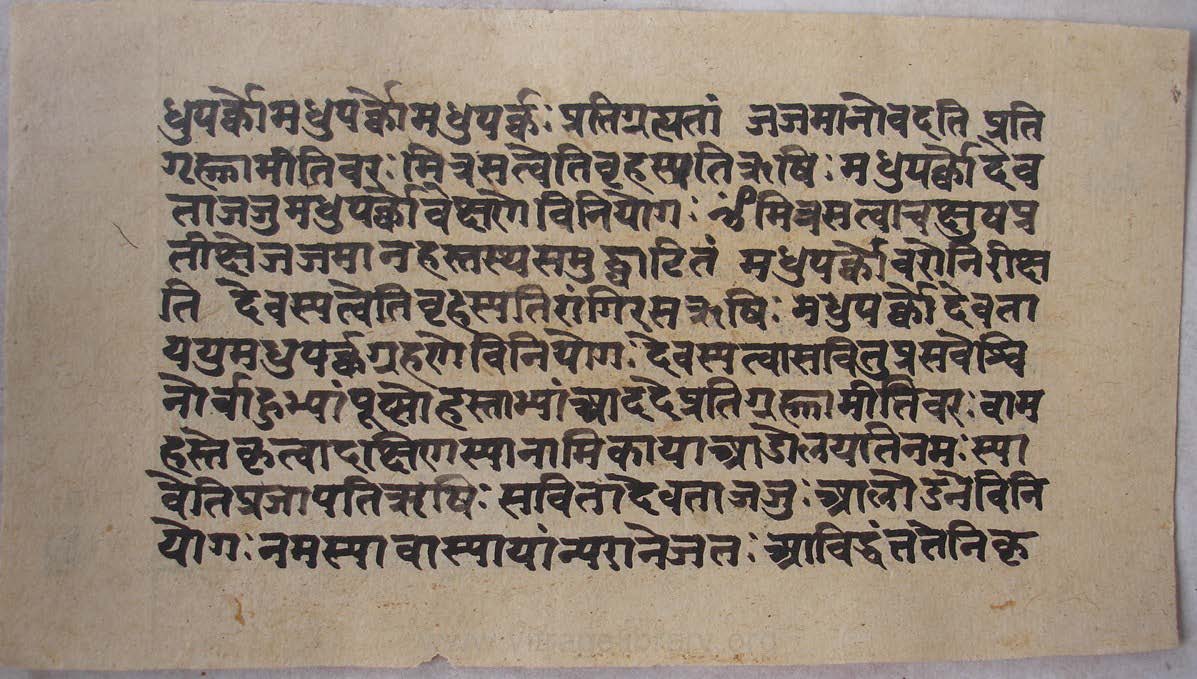 धुपर्कोमधुपर्कोमधुपर्कः प्रतिगृत्यतां जजमानोवदति प्रति
गृह्णामीतिवरः मित्रसत्वेतिवृहस्पतिऋषिः मधुपर्कोदेव
ताजजुमधुपर्कोवेक्षणेविनियोगः ॐमित्रसत्वाचक्षुषप्र
तीक्षेजजमानहस्तस्थसमुद्घाटितं मधुपर्कोवरोनिरीक्ष
ति देवस्यत्वेतिवृहस्पतिरांगिरसऋषिः मधुपर्कोदेवता
ययुमधुपर्कग्रहणेविनियोगः देवस्यत्वासवितुप्रसवेश्वि
नोर्वाहुभ्यांपूष्णोहस्ताभ्यांआददेप्रतिगृह्णामीतिवरः वाम
हस्तेकृत्वादक्षिणस्यानामिकायाआडोलयतिनमः स्या
वेतिप्रजापतिऋषिः सवितादेवताजजुः आलोडनेविनि
योगः नमस्यावास्यायांन्यरानेजलः आविद्धंत्ततेनिकृ
www.vitragelibrary.org